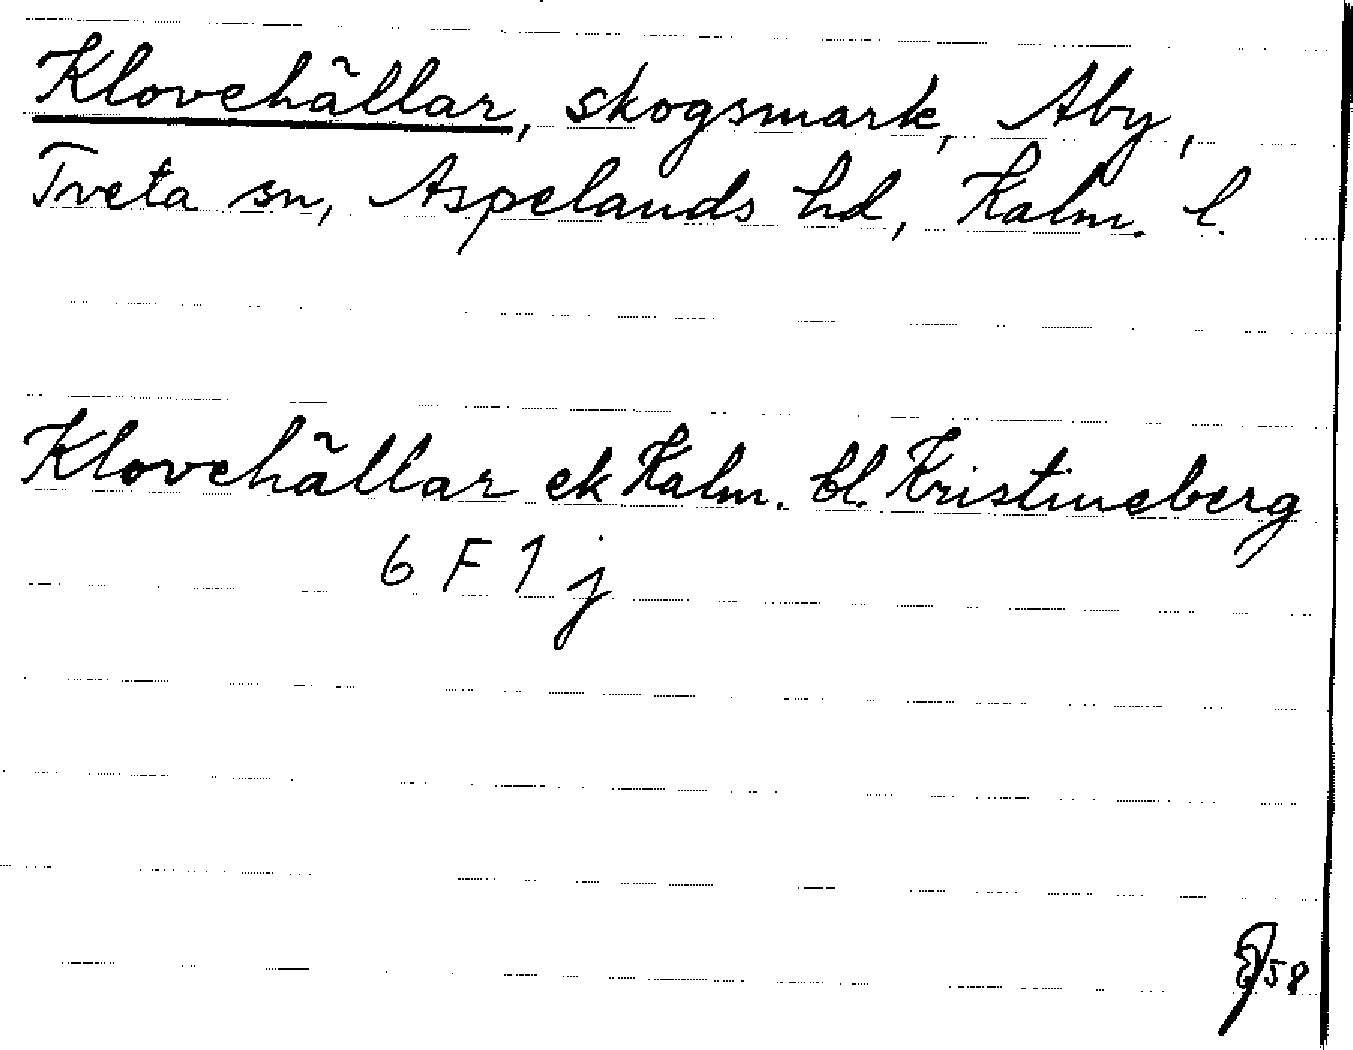 Klovehällar, skogsmark, Aby,
Tveta sn, Aspelands hd, Kalm. l.
Klovehällar ek Kalm. bl. Kristineberg
6 F 1 j
58